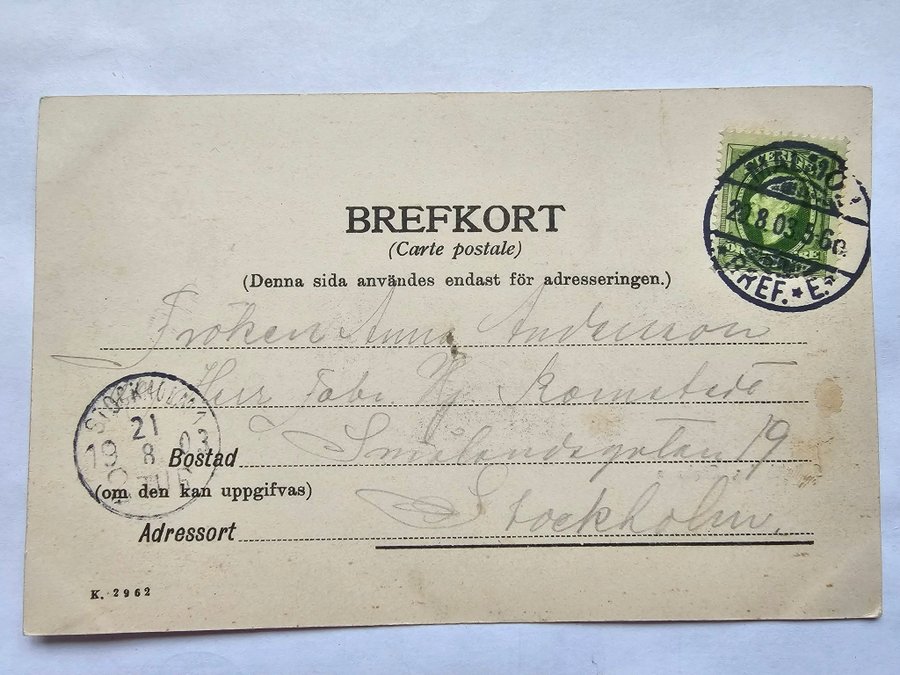 BREFKORT
(Carte postale)
(Denna sida användes endast för adresseringen.)
Fröken Anna Andersson
Herr Fabr.
Bostad Smålandsgatan 19
(om den kan uppgifvas)
Adressort Stockholm.
K. 2962
MALMÖ
20.8.03 5-6
BREF. ★ E. ★
STOCKHOLM 1
21
19 8 03
TUR